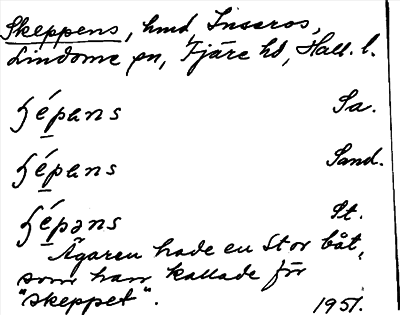 Skeppens, hmd, Inseros,
Lindome sn, Fjäre hd, Hall. l.
ɧépans Sa.
ɧépans Sand.
ɧépəns St.
Ägaren hade en stor båt,
som han kallade för
"skeppet". 1951.